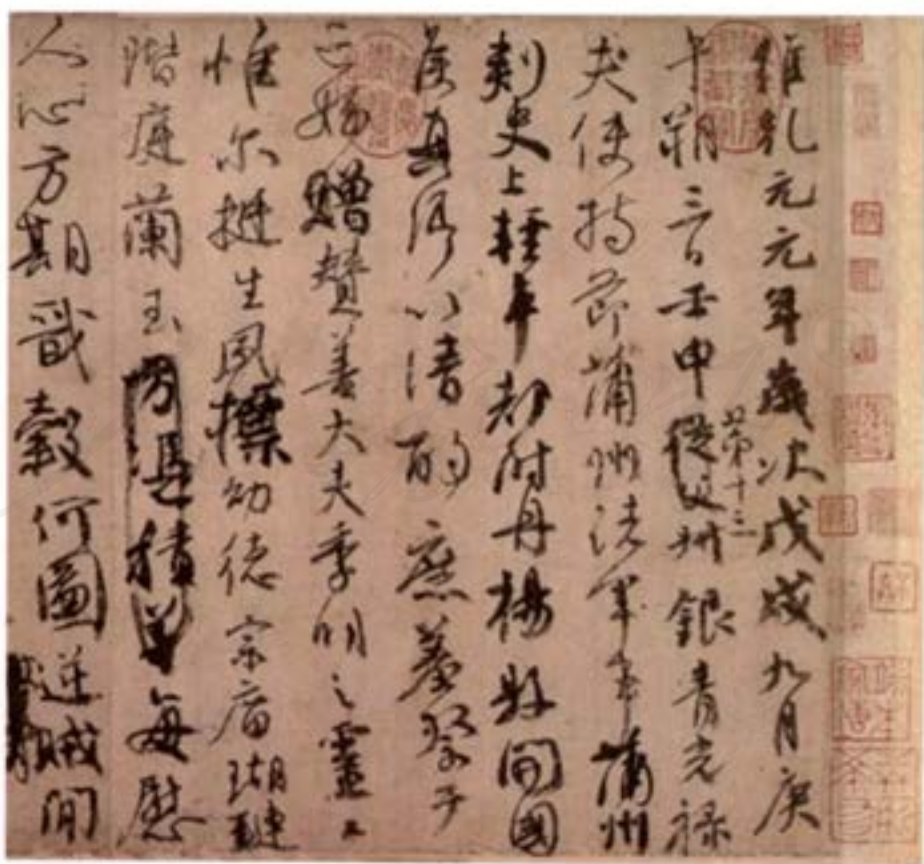 維乾元元年歲次戊戌九月庚
午朔三日壬申第十三從父叔銀青光祿
夫使持節蒲州諸軍事蒲州
刺史上輕車都尉丹楊縣開國
侯真卿以清酌庶羞祭于
亡姪贈贊善大夫季明之靈
惟爾挺生夙標幼德宗廟瑚璉
階庭蘭玉方憑積善每慰
人心方期戩穀何圖逆賊間